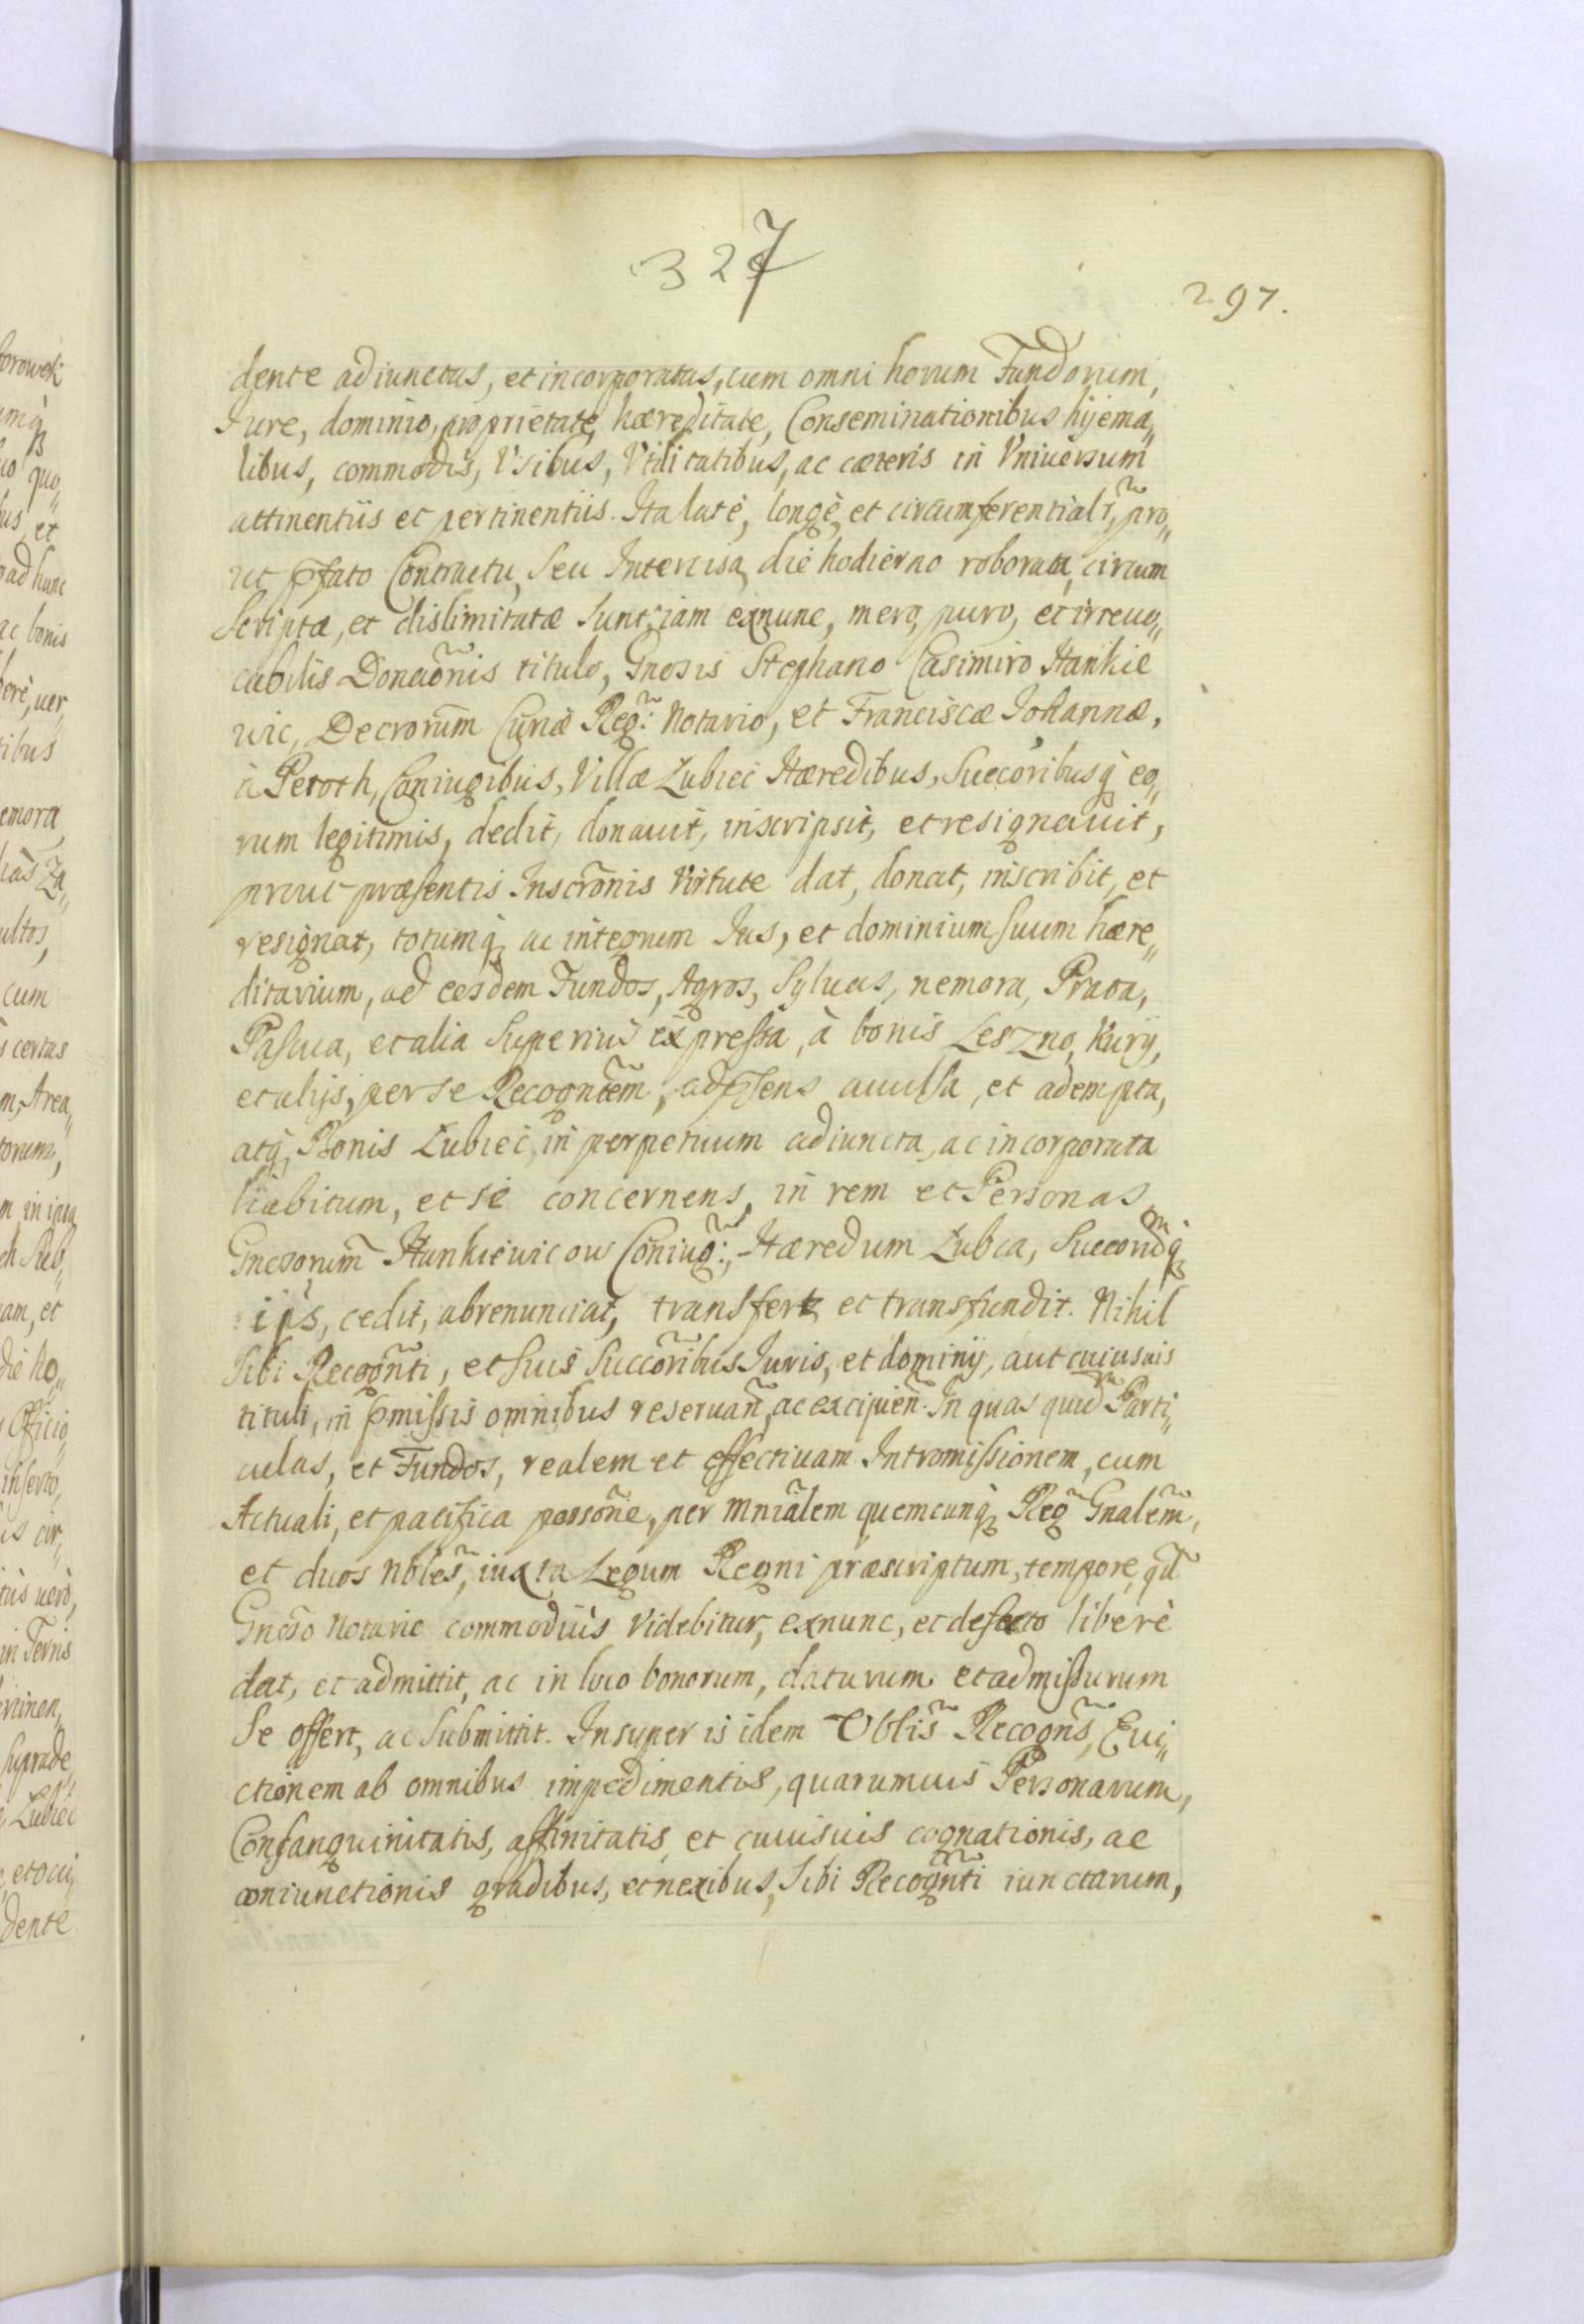 327
297.
dente adiunctas, et incorporatas, cum omni horum Fundorum,
Iure, dominio, proprietate, hæreditate, Conseminationibus hijema„
libus, commodis, Vsibus, Vtilitatibus, ac cæteris in Vniuersum
attinentiis et pertinentiis. Ita latè, longè, et circumferentialr̃, pro„
ut p̃fato Contractu, Seu Intercisa, die hodierno roborata, circum
Scriptæ, et dislimitatæ Sunt, iam exnunc, mero, puro, et irreuo„
cabilis Donaõnis titulo, Gnosis Stephano Casimiro Hankie
wic, Decrorum̃ Curiæ Reg̃: Notario, et Franciscæ Johannæ,
à Peroth, Coniugibus, Villæ Lubiec Hæredibus, Succoribusq̃ eo„
rum legitimis, dedit, donauit, inscripsit, et resignauit,
prout præsentis Inscrõnis Virtute dat, donat, inscribit, et
resignat, totumq̃ ac integrum Ius, et dominium suum hære„
ditarium, ad eosdem Fundos, Agros, Syluas, nemora, Prata,
Pascua, et alia Superius expressa, à bonis Leszno, Kury,
et alijs, per se Recogntem̃, ad p̃sens auulsa, et adempta,
atq̃ Bonis Lubiec, in perpetuum adiuncta, ac incorporata
habitum, et se concernens, in rem et Personas
Gnesorum̃ Hankiewicow Coniug̃:, Hæredum Lubca, Succorumq̃
ips, cedit, abrenunciat, transfert, et transfundit. Nihil
Sibi Recogñti, et Suis Succoribus Iuris, et dominij, aut cuiusuis
tituli, in p̃missis omnibus reseruañ, ac excipieñ. In quas quid̃ Parti„
culas, et Fundos, realem et effectiuam Intromissionem, cum
Actuali, et pacifica possõne, per Mniãlem quemcunq̃ Reg̃ Gnalem̃,
et duos Nbles̃, iuxta Legum Regni præscriptum, tempore, qũ
Gnõso Notario commodiùs Videbitur, exnunc, et defacto liberè
dat, et admittit, ac in loco bonorum, daturum et admissurum
Se offert, ac Submittit. Insuper is idem Oblis̃ Recogñs, Eui„
ctionem ab omnibus impedimentis, quarumuis Personarum,
Consanguinitatis, affinitatis, et cuiusuis cognationis, ac
coniunctionis gradibus, et nexibus, Sibi Recogñti iunctarum,